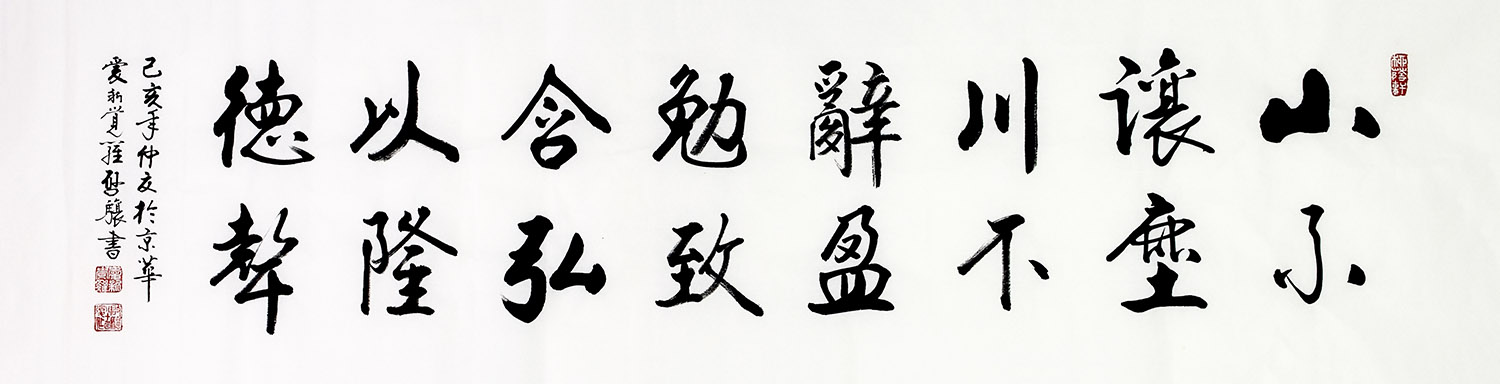 山不
讓塵
川不
辭盈
勉致
含弘
以隆
德聲
己亥年仲夏於京華
愛新覺羅啓驤書